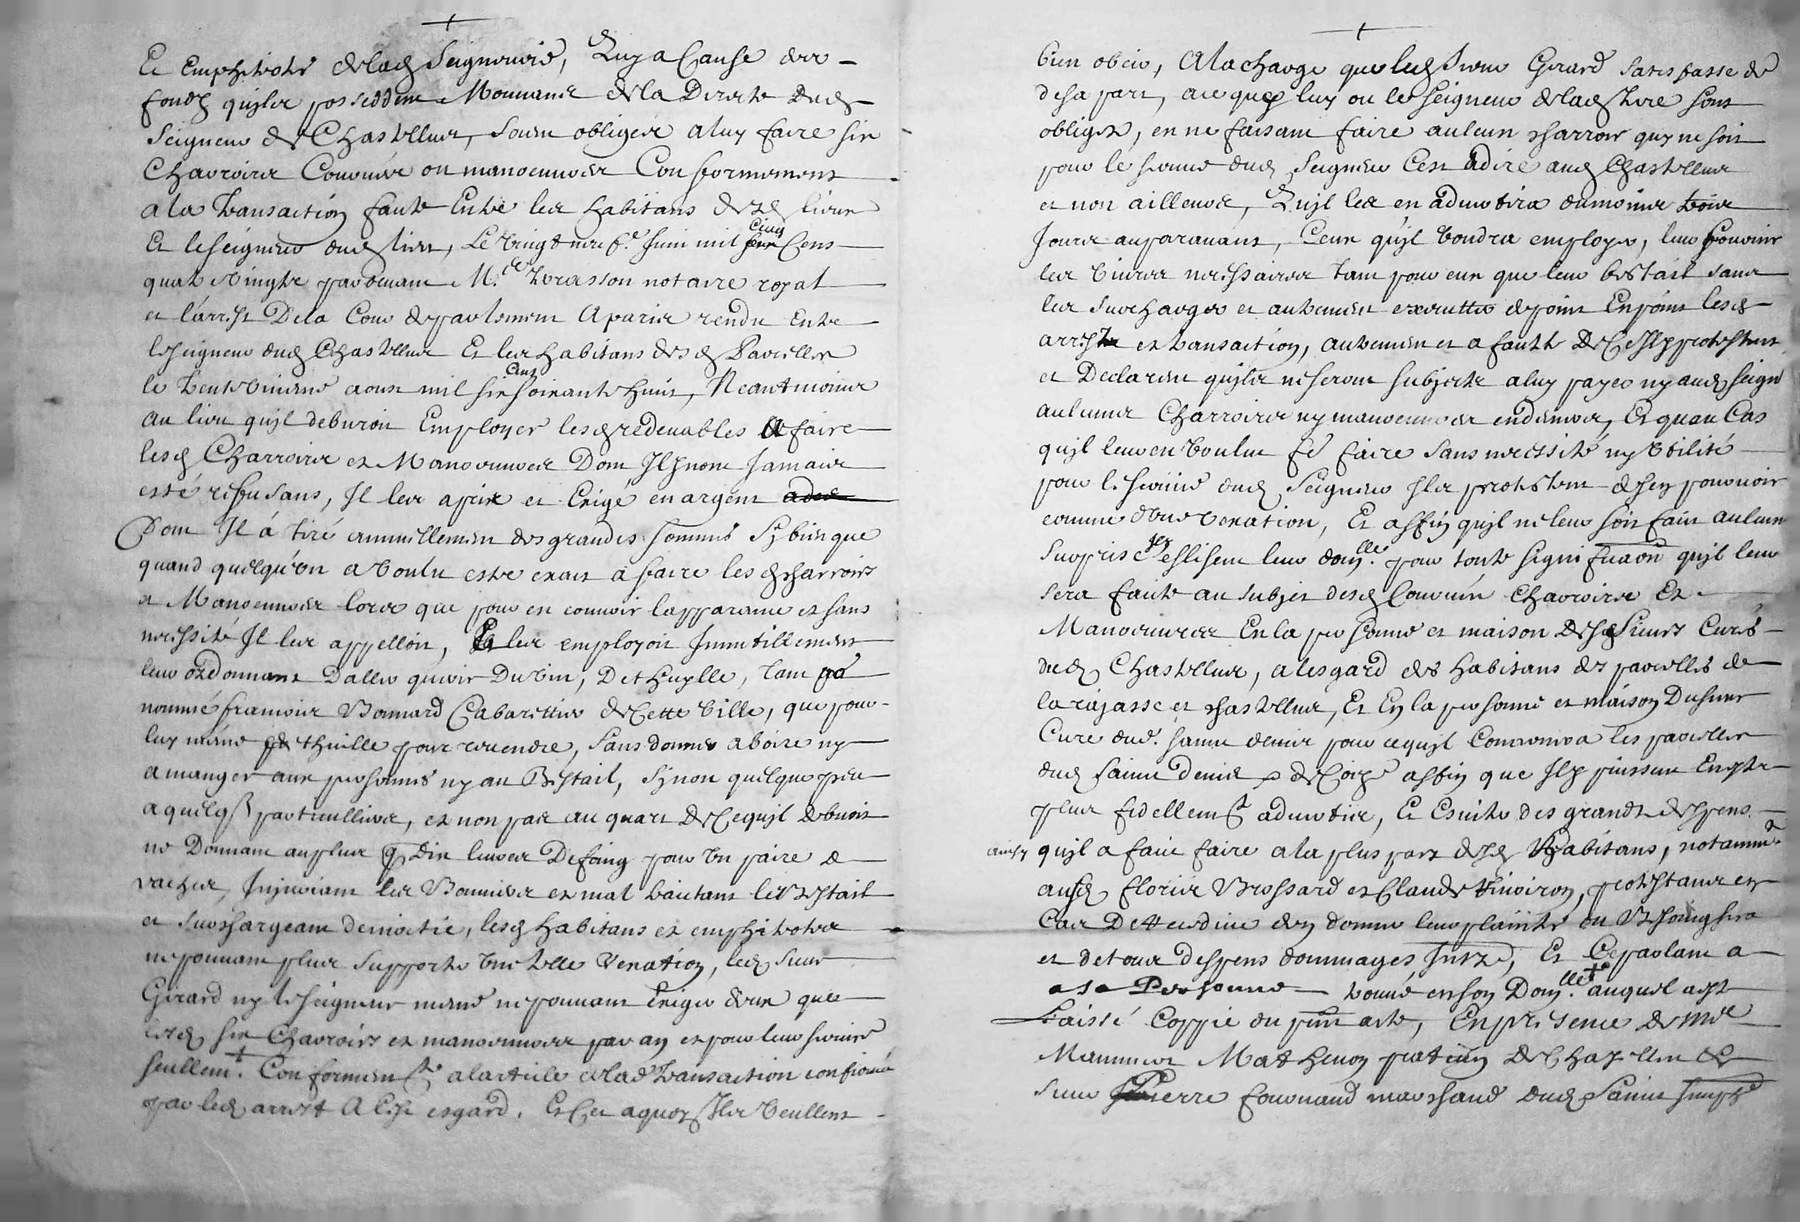 Et emphiteote de lad Seigneurie, Quj a Cause des
fondz qujls possedden Mouuans de la Directe dud
Seigneur de Chastellus, soient obligés a luy faire six
Charroirs Couruée ou manoeuures Conformement
a la transaction faicte Entre les habitans desd lieux
Et le seigneur dud lieu, Le Vingt neuf.e Juin mil cinq Cens
quatre Vingts par deuant M.e trasson notaire royal
et l'arrest De la Cour de parlement A paris rendu Entre
le seigneur dud Chastellus Et les habitans desd Paroisses
le trente Vniesme aoust mil six Cens soixante huict, Neantmoins
au lieu qujl deburoit Employer lesd redeuables A faire
lesd Charroirs et Manoeuures Dont Jlz nont Jamais
esté refusans, Jl les a pris et Exigé en argent
Dont Jl á tiré annuellement des grandes sommes Sy bien que
quand quelqu'vn a Voulu estre exact á faire lesd charroirs
et Manoeuures lors que pour en couurir l'apparance et sans
necessité Jl les appelloit, Et les employoit Jnnutillement
leur ordonnant D'aller querir Du Vin, De th'uylle, tant po.r
nommé francois Bonnard Cabarettier de Cette Ville, que pour
luy mesme de th'uille pour reuendre, Sans donner a boire ny
a manger aux personnes ny au Bestail, Synon quelque peu
a quelqs particulliers, et non pas au quart de Ce qujl debuoit
ne Donnant au plus q dix liures De foing pour Vn paire de
vaches, Jnjuriant les Bouuiers et mal traictant le Bestail
et surchargeant de moictié, lesd habitans et emphiteotes
ne pouuant plus supporter Vne telle Vexation, led sieur
Girard ny le seigneur mesme ne pouuant Exiger d'eux que
lesd six Charroirs et manoeuures par an et pour leur seruice
seullem.t Conformem.t a l'article de lad transaction confirmé
par led arrest A leur esgard, Et Ce a quoy Jls Veullent
bien obeir, A la charge que led Sieur Girard satisfasse de
de sa part, a ce que luy ou le seigneur de lad terre sont
obligés, en ne faisant faire aulcun charroir quj ne soit
pour le seruice dud Seigneur C'est Adire aud Chastellus
et non ailleurs, Qujl les en aduertira du moins trois
Jours auparauant, Ceux qujl Voudra employer, leur fournir
les Viures necessaires tant pour eux que leur bestail sans
les surcharger et autrement executter de point En point lesd
arrest et transaction, autrement et a faulte de Ce Jlz protestent
et Declarent qujls ne seront subjects a luy payer ny aud seig.r
aulcuns Charroirs ny manoeuures en deniers, Et qu'au Cas
qujl leur en Voulut fe faire sans necessité ny Vtilité
pour le seruice dud Seigneur Jls protestent de sen pouruoir
comme d'vne Vexation, Et affin qujl ne leur soit fait aulcun
surprise Jlz eslisent leur dom.lle pour toute signiffication qujl leur
sera faicte au subjet desd Couruée Charroirs Et
Manoeuures En la personne et maison desd Sieurs Curés
dud Chastellus, a lesgard des habitans des paroisses de
la rajasse et chastellus, Et En la personne et maison Du sieur
Curé dud. sainct denis pour ce qujl Concernera les paroisses
dud sainct denis affin que Jlz puissent En estre
plus fidellem.t aduertis, Et Esuiter des grands despens
ainsy qujl a faict faire a la plus part desd habitans, notamm.t
ausd florie Brossard et Claude thiuoiron, protestant en
Cas De de donner leur plainte ou Besoing sera
et de tous despens dommages Jntz, Et Ce parlant a
a sa Personne trouué en son Dom.lle auquel a est
Laissé Coppie du pnt acte, En presence de M.e
Mathieu praticien de Chazelles
sieur Pierre Couonaud marchand dud Sainct